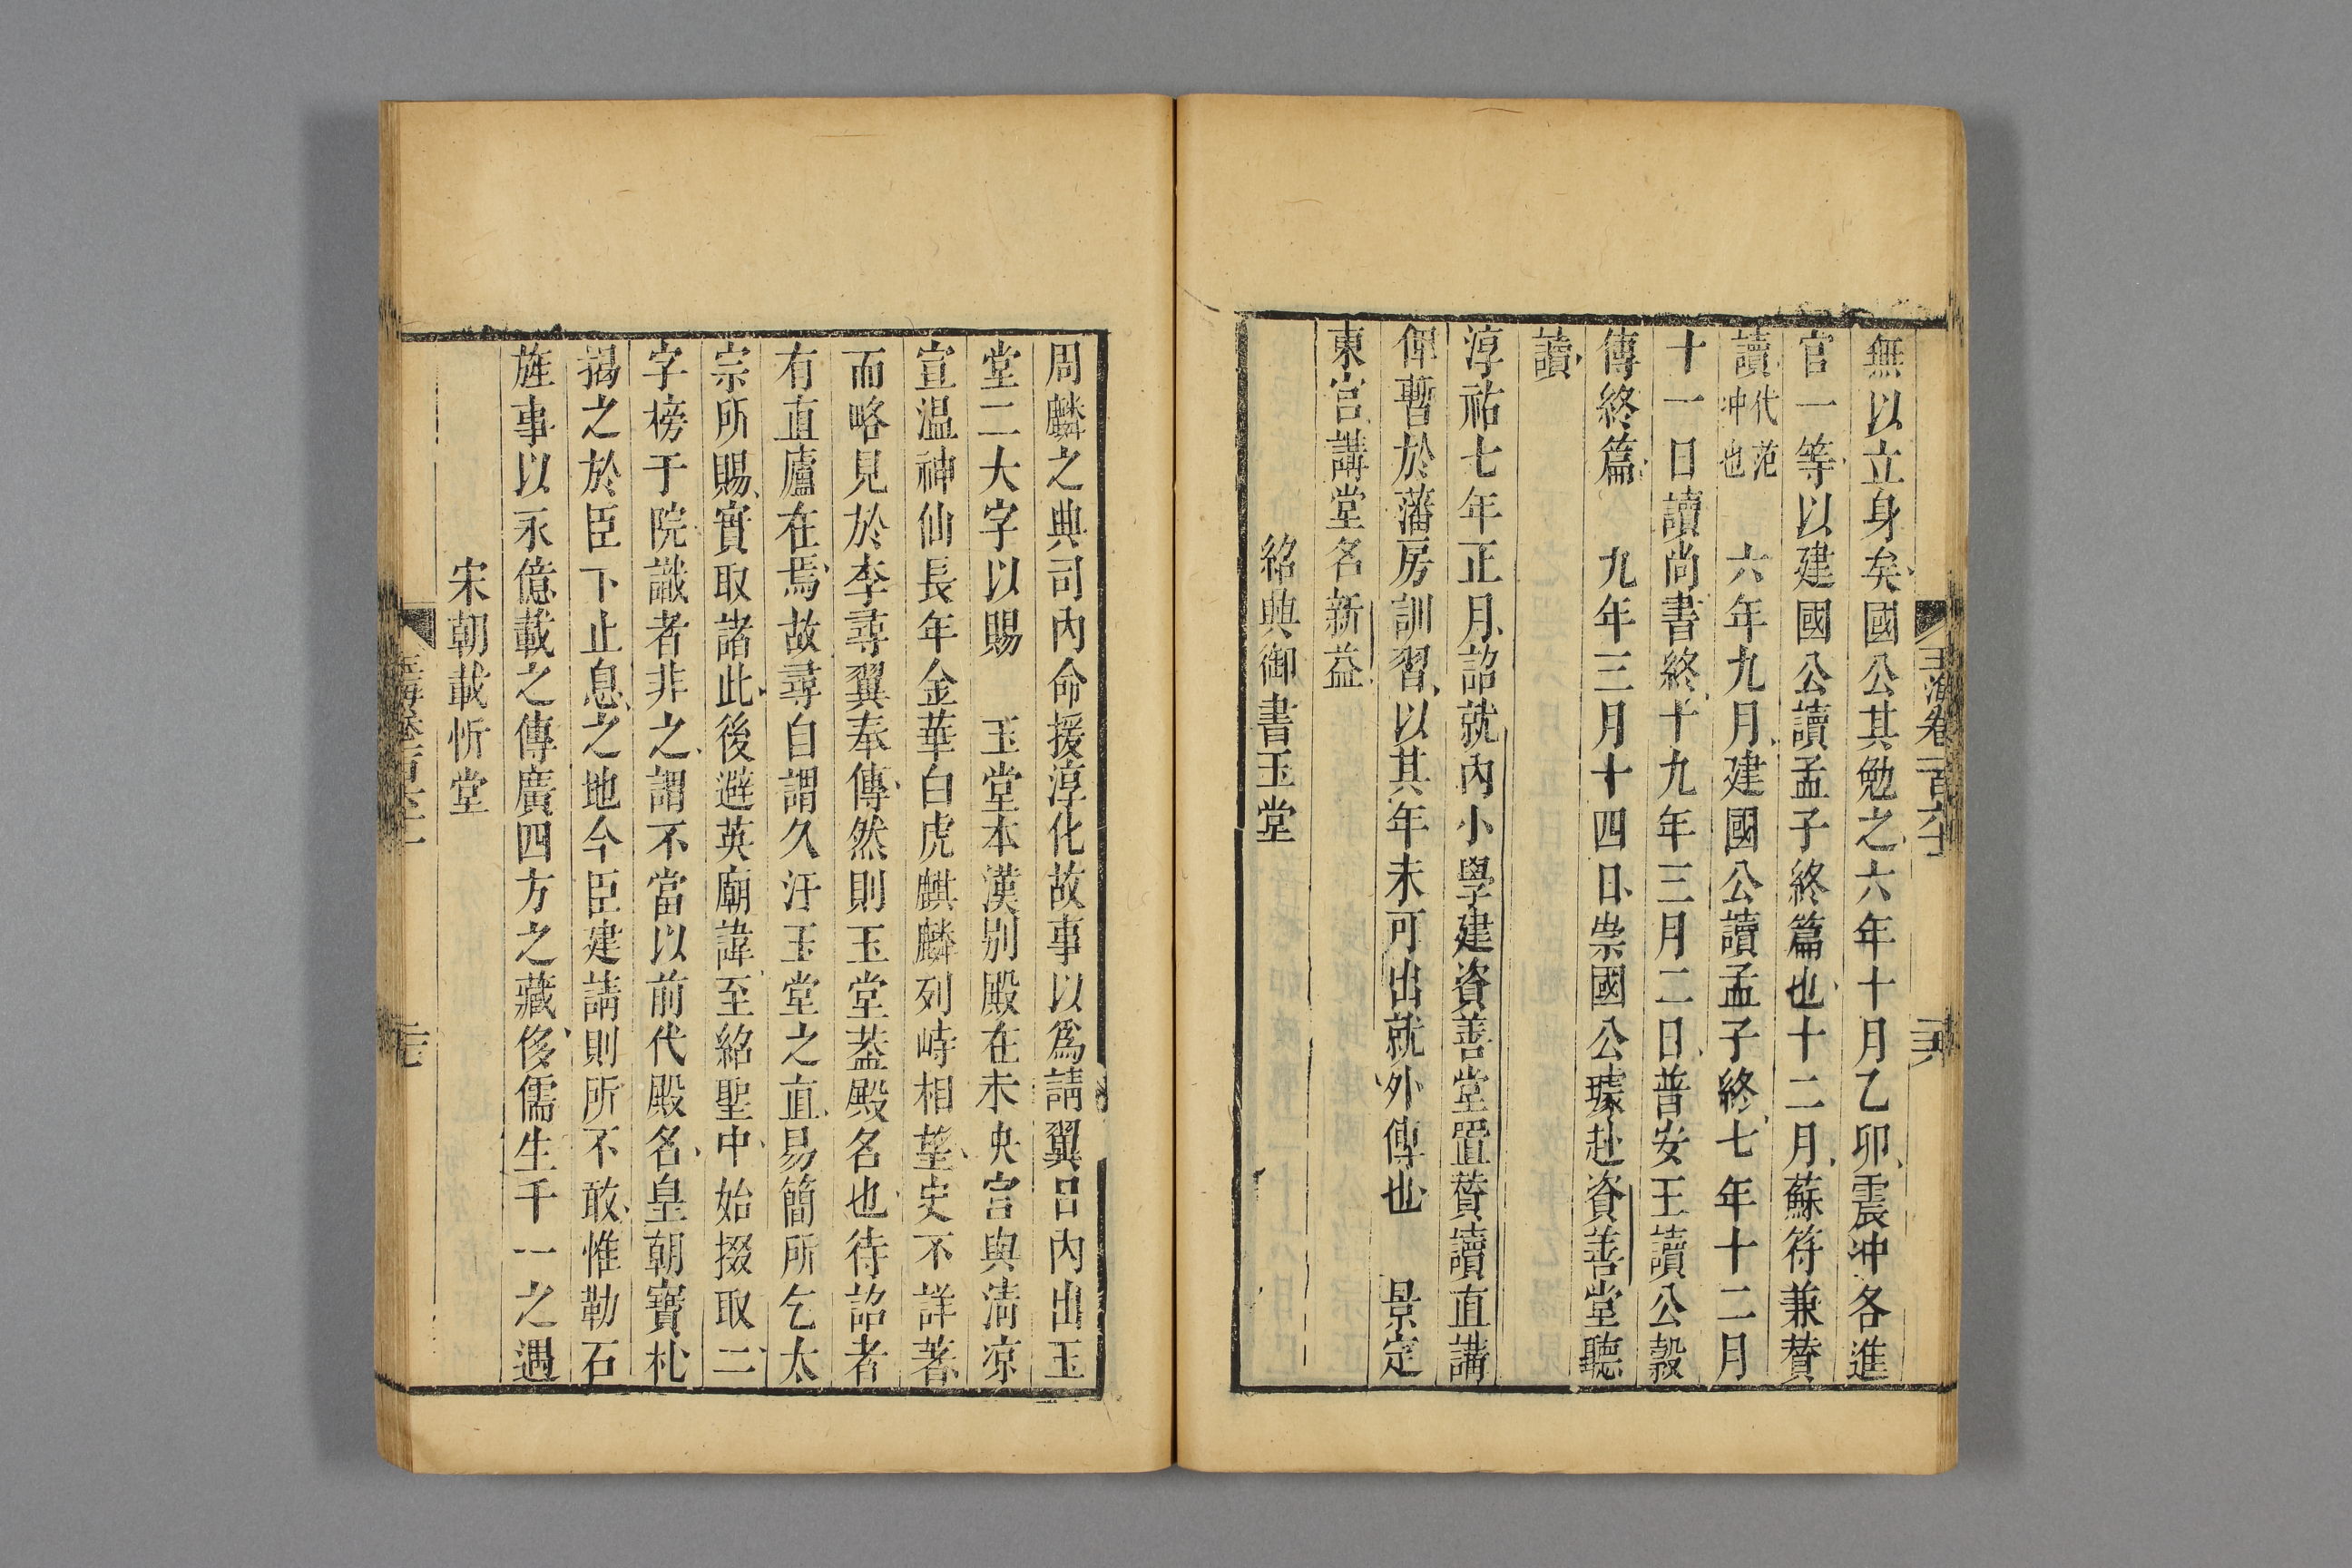 無以立身矣國公其勉之六年十月乙卯震冲各進
官一等以建國公讀孟子終篇也十二月蘇符兼贊
讀代范冲也　六年九月建國公讀孟子終七年十二月
十一日讀尚書終十九年三月二日普安王讀公穀
傳終篇　九年三月十四日崇國公璩赴資善堂聽
讀
淳祐七年正月詔就內小學建資善堂置贊讀直講
俾暫於藩房訓習以其年未可出就外傅也　景定
東宮講堂名新益
紹興御書玉堂
周麟之典司內命援淳化故事以爲請翼日內出玉
堂二大字以賜　玉堂本漢別殿在未央宮與淸凉
宣溫神仙長年金華白虎麒麟列峙相望史不詳著
而略見於李尋翼奉傳然則玉堂葢殿名也待詔者
有直廬在焉故尋自謂久汙玉堂之直易簡所乞太
宗所賜實取諸此後避英廟諱至紹聖中始掇取二
字榜于院識者非之謂不當以前代殿名皇朝寶札
揭之於臣下止息之地今臣建請則所不敢惟勒石
旌事以永億載之傳廣四方之藏侈儒生千一之遇
宋朝載忻堂